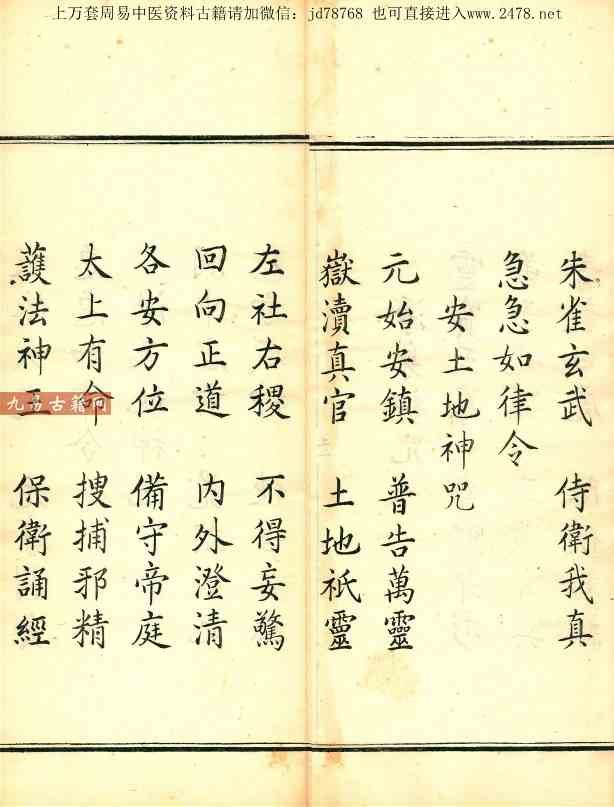 上万套周易中医资料古籍请加微信：jd78768 也可直接进入www.2478.net
朱雀玄武 侍衛我真
急急如律令
安土地神咒
元始安鎮 普告萬靈
嶽瀆真官 土地祇靈
左社右稷 不得妄驚
回向正道 內外澄清
各安方位 備守帝庭
太上有命 搜捕邪精
護法神王 保衛誦經
九易古籍网